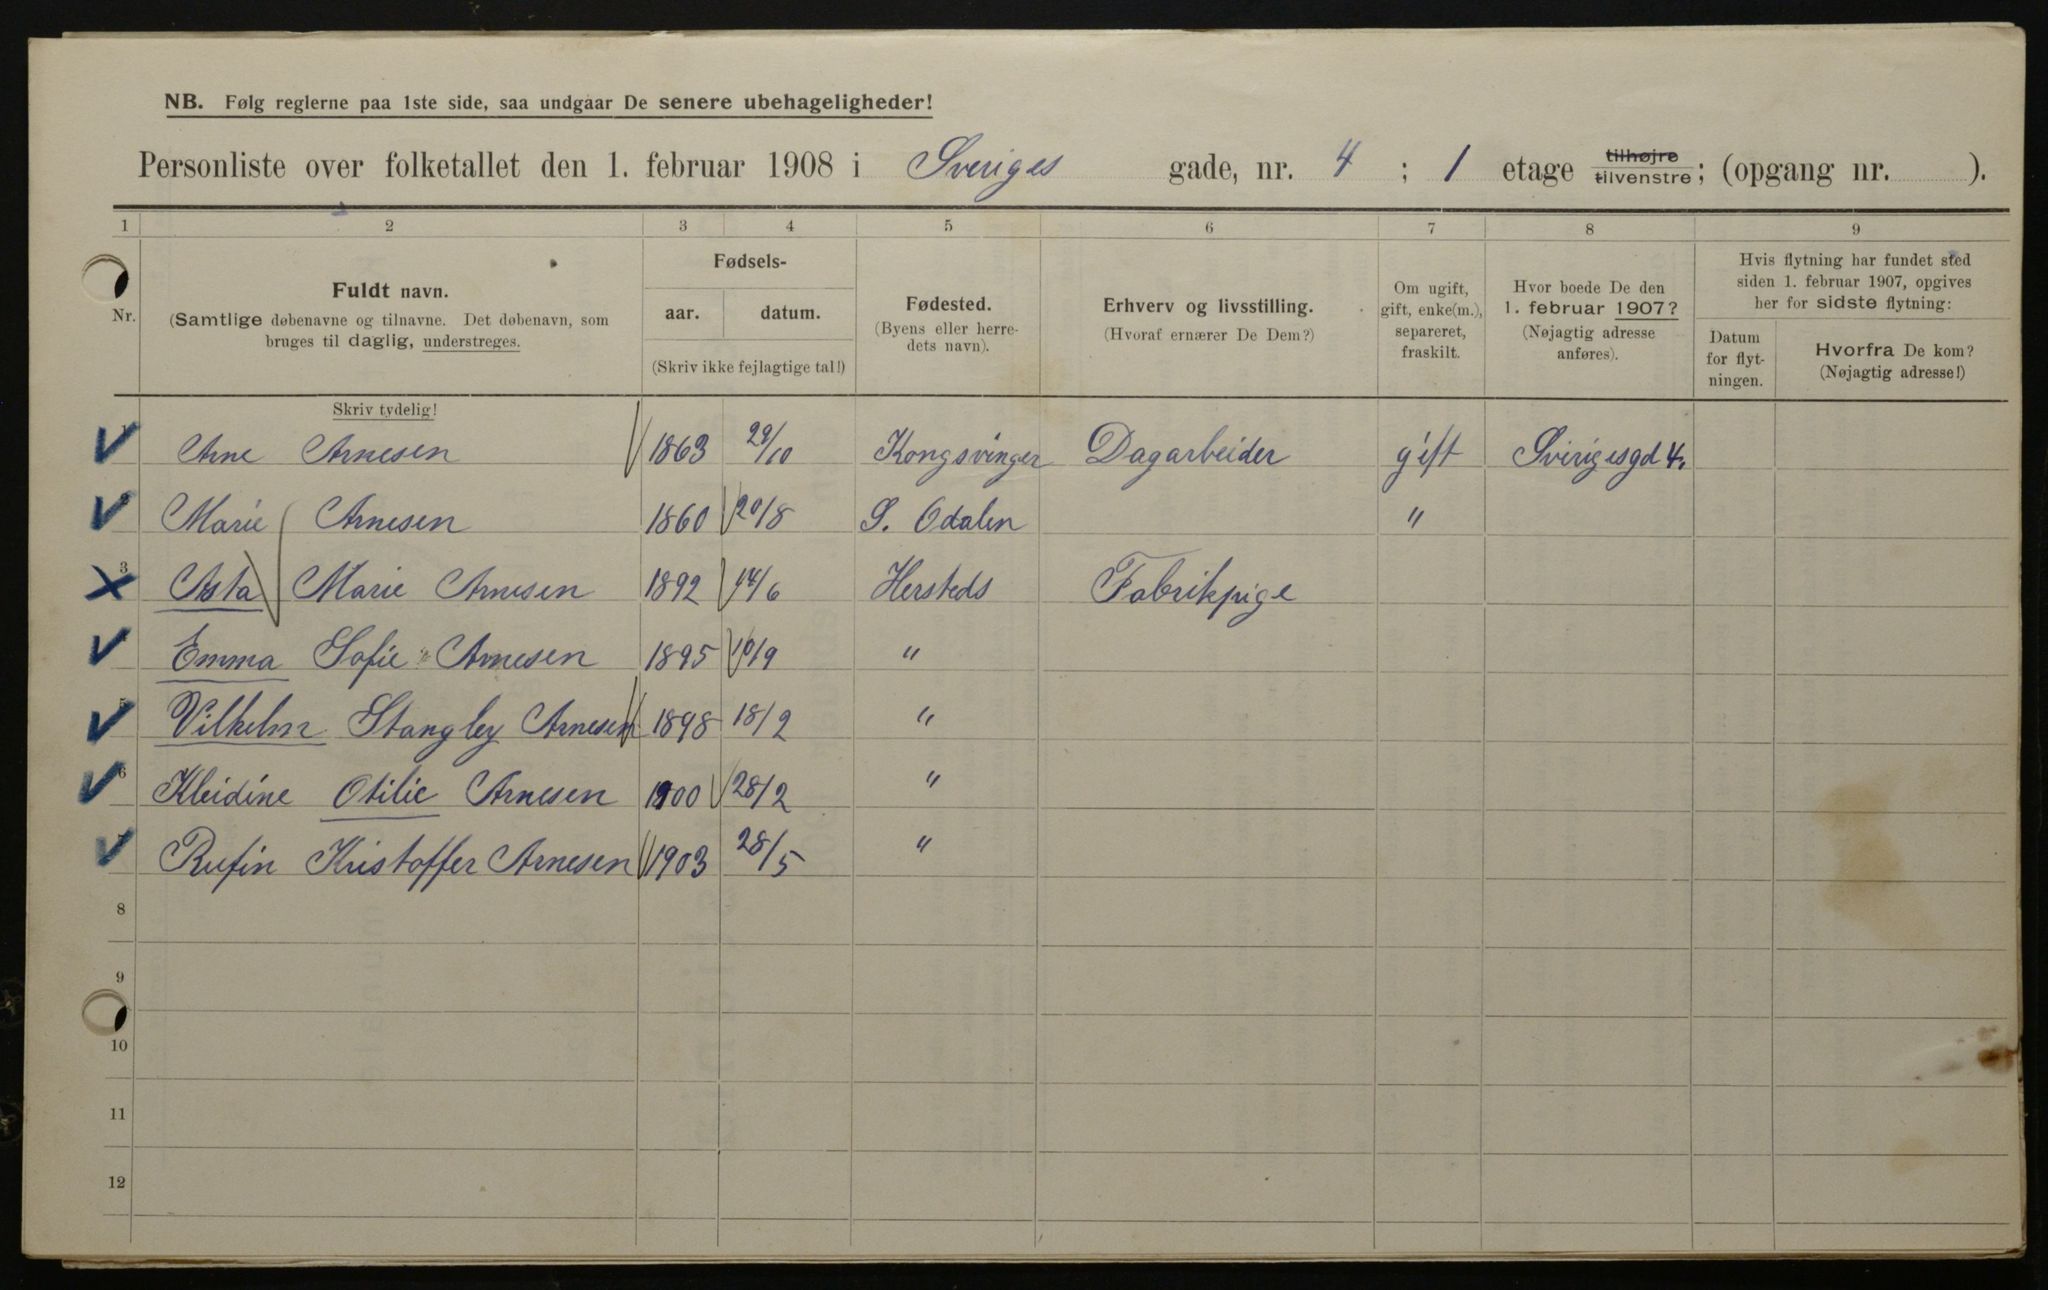 NB. Følg reglerne paa 1ste side, saa undgaar De senere ubehageligheder!
Personliste over folketallet den 1. februar 1908 i Sveriges gade, nr. 4 ; 1 etage tilhøjre tilvenstre; (opgang nr. ).
1 2 3 4 5 6 7 8 9
Nr.
Fuldt navn.
(Samtlige døbenavne og tilnavne. Det døbenavn, som
bruges til daglig, understreges.
Skriv tydelig!
Fødsels-
aar. datum.
(Skriv ikke fejlagtige tal!)
Fødested.
(Byens eller herre-
dets navn).
Erhverv og livsstilling.
(Hvoraf ernærer De Dem?)
Om ugift,
gift, enke(m.),
separeret,
fraskilt.
Hvor boede De den
1. februar 1907?
(Nøjagtig adresse
anføres).
Hvis flytning har fundet sted
siden 1. februar 1907, opgives
her for sidste flytning:
Datum
for flyt-
ningen.
Hvorfra De kom?
(Nøjagtig adresse!)
1 Arne Arnesen 1863 29/10 Kongsvinger Dagarbeider gift Sverigesgd 4.
2 Marie Arnesen 1860 20/8 S. Odalen "
3 Asta Marie Arnesen 1892 14/6 Hersteds Fabrikpige
4 Emma Sofie Arnesen 1895 10/9 "
5 Vilhelm Stangley Arnesen 1898 18/2 "
6 Kleidine Otilie Arnesen 1900 28/2 "
7 Rufin Kristoffer Arnesen 1903 28/5 "
8
9
10
11
12